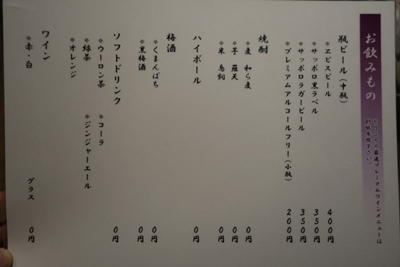 お飲みもの
瓶ビール（中瓶）
＊ヱビスビール 400円
＊サッポロ黒ラベル 350円
＊サッポロラガービール 350円
＊プレミアムアルコールフリー（小瓶） 200円
焼酎
＊麦 和ら麦 0円
＊芋 0円
＊米 0円
ハイボール 0円
梅酒
＊くまんばち 0円
＊黒梅酒 0円
ソフトドリンク 0円
＊ウーロン茶 ＊コーラ
＊緑茶 ＊ジンジャーエール
＊オレンジ
ワイン
＊赤・白 グラス 0円